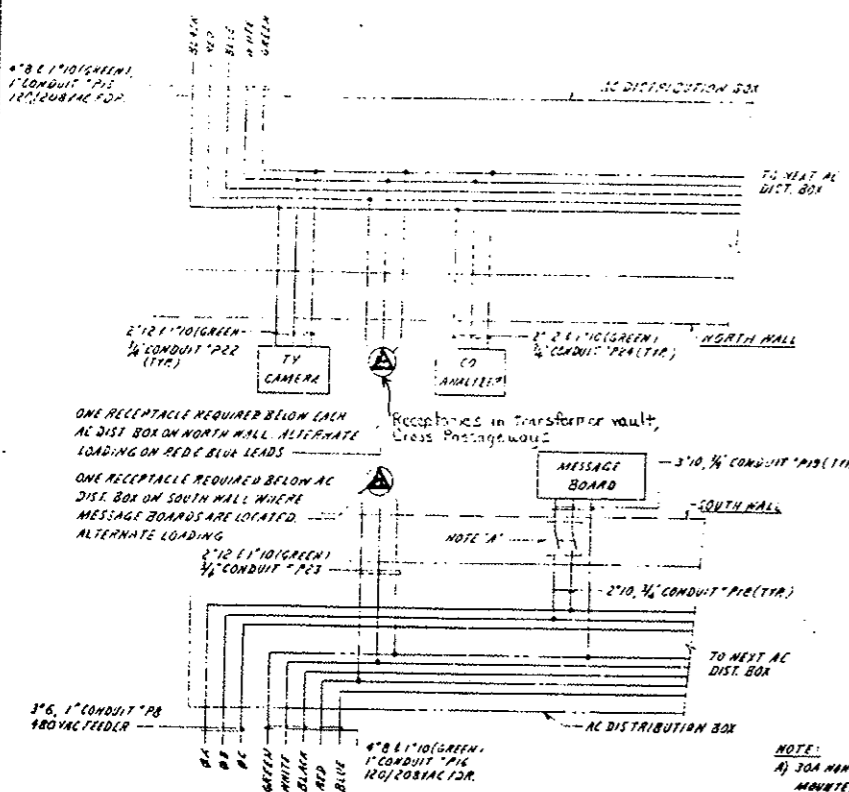 BLACK
RED
BLUE
WHITE
GREEN
4#8 & 1#10(GREEN),
1" CONDUIT #P15
120/208VAC FDR.
AC DISTRIBUTION BOX
TO NEXT AC
DIST. BOX
2#12 & 1#10(GREEN)
3/4" CONDUIT #P22
(TYP.)
TV
CAMERA
CO
ANALIZER
2#12 & 1#10(GREEN)
3/4" CONDUIT #P24(TYP.)
NORTH WALL
ONE RECEPTACLE REQUIRED BELOW EACH
AC DIST BOX ON NORTH WALL. ALTERNATE
LOADING ON RED & BLUE LEADS
Receptacles in transformer vault,
Cross Passageways
ONE RECEPTACLE REQUIRED BELOW AC
DIST. BOX ON SOUTH WALL WHERE
MESSAGE BOARDS ARE LOCATED.
ALTERNATE LOADING
MESSAGE
BOARD
3#10, 3/4" CONDUIT #P19(TYP
SOUTH WALL
NOTE "A"
2#12 & 1#10(GREEN)
3/4" CONDUIT #P23
2#10, 3/4" CONDUIT #P18(TYP.)
TO NEXT AC
DIST. BOX
3#6, 1" CONDUIT #P8
480VAC FEEDER
AC DISTRIBUTION BOX
ØA
ØB
ØC
GREEN
WHITE
BLACK
RED
BLUE
4#8 & 1#10(GREEN)
1" CONDUIT #P16
120/208VAC FDR.
NOTE:
A) 30A NON
MOUNTE